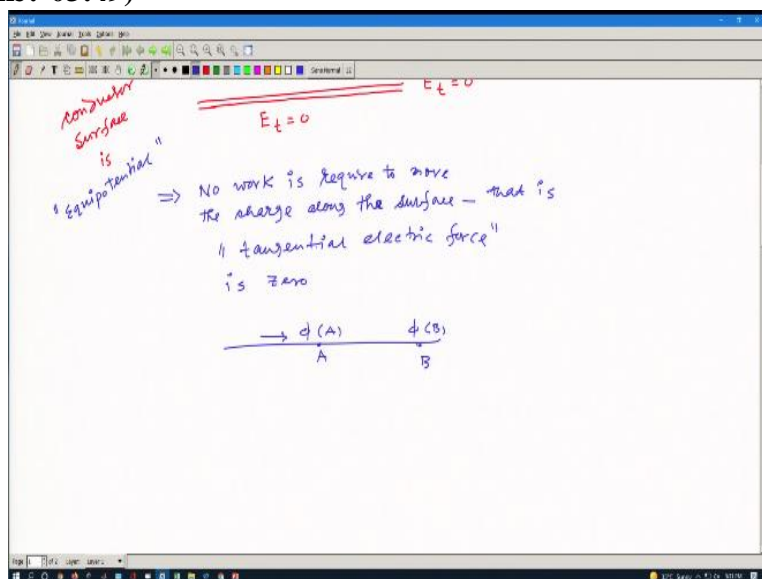 File Edit View Journal Tools Options Help
Conductor
Surface
is
"Equipotential"
E t = 0
E t = 0
⇒ No work is require to move
the charge along the surface – that is
"tangential electric force"
is zero
→ ϕ (A) ϕ (B)
A B